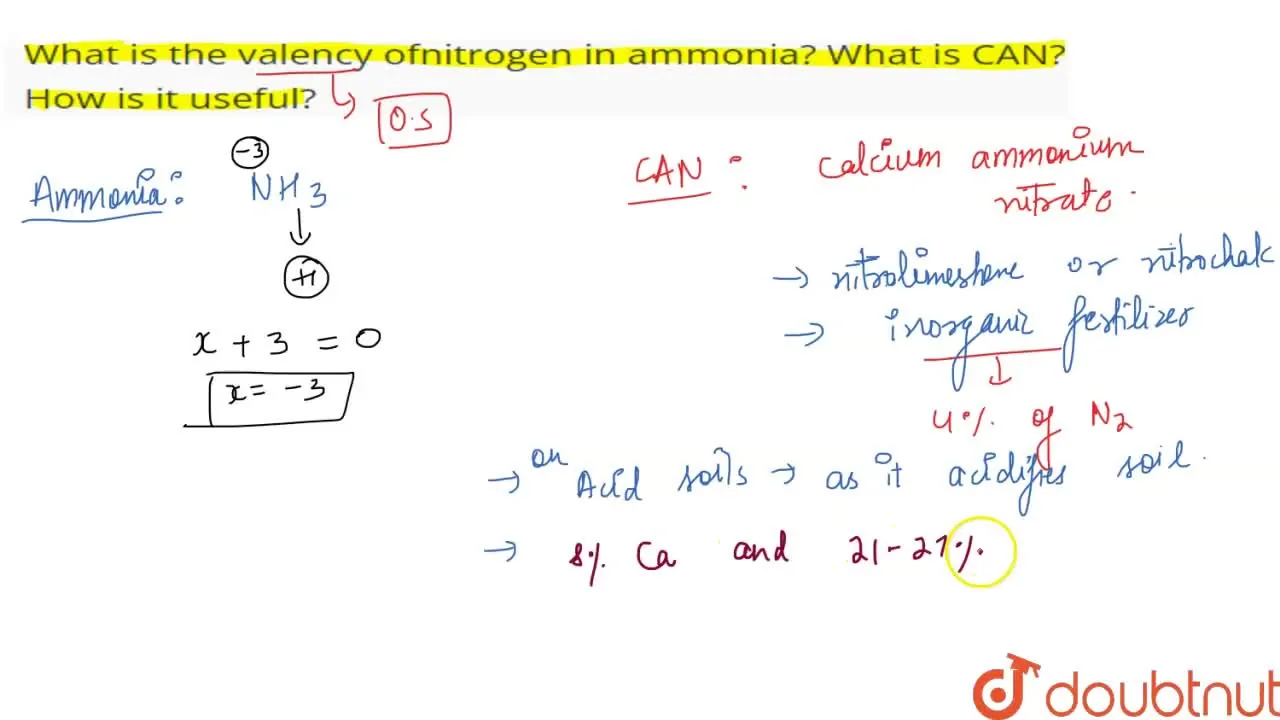 What is the valency ofnitrogen in ammonia? What is CAN?
How is it useful?
O.S
Ammonia:
-3
NH3
+1
x + 3 = 0
x = -3
CAN : Calcium ammonium
nitrate.
→ nitrolimestone or nitrochalk
→ inorganic fertilizer
4% of N2
→ on Acid soils → as it acidifies soil.
→ 8% Ca and 21-27%
doubtnut